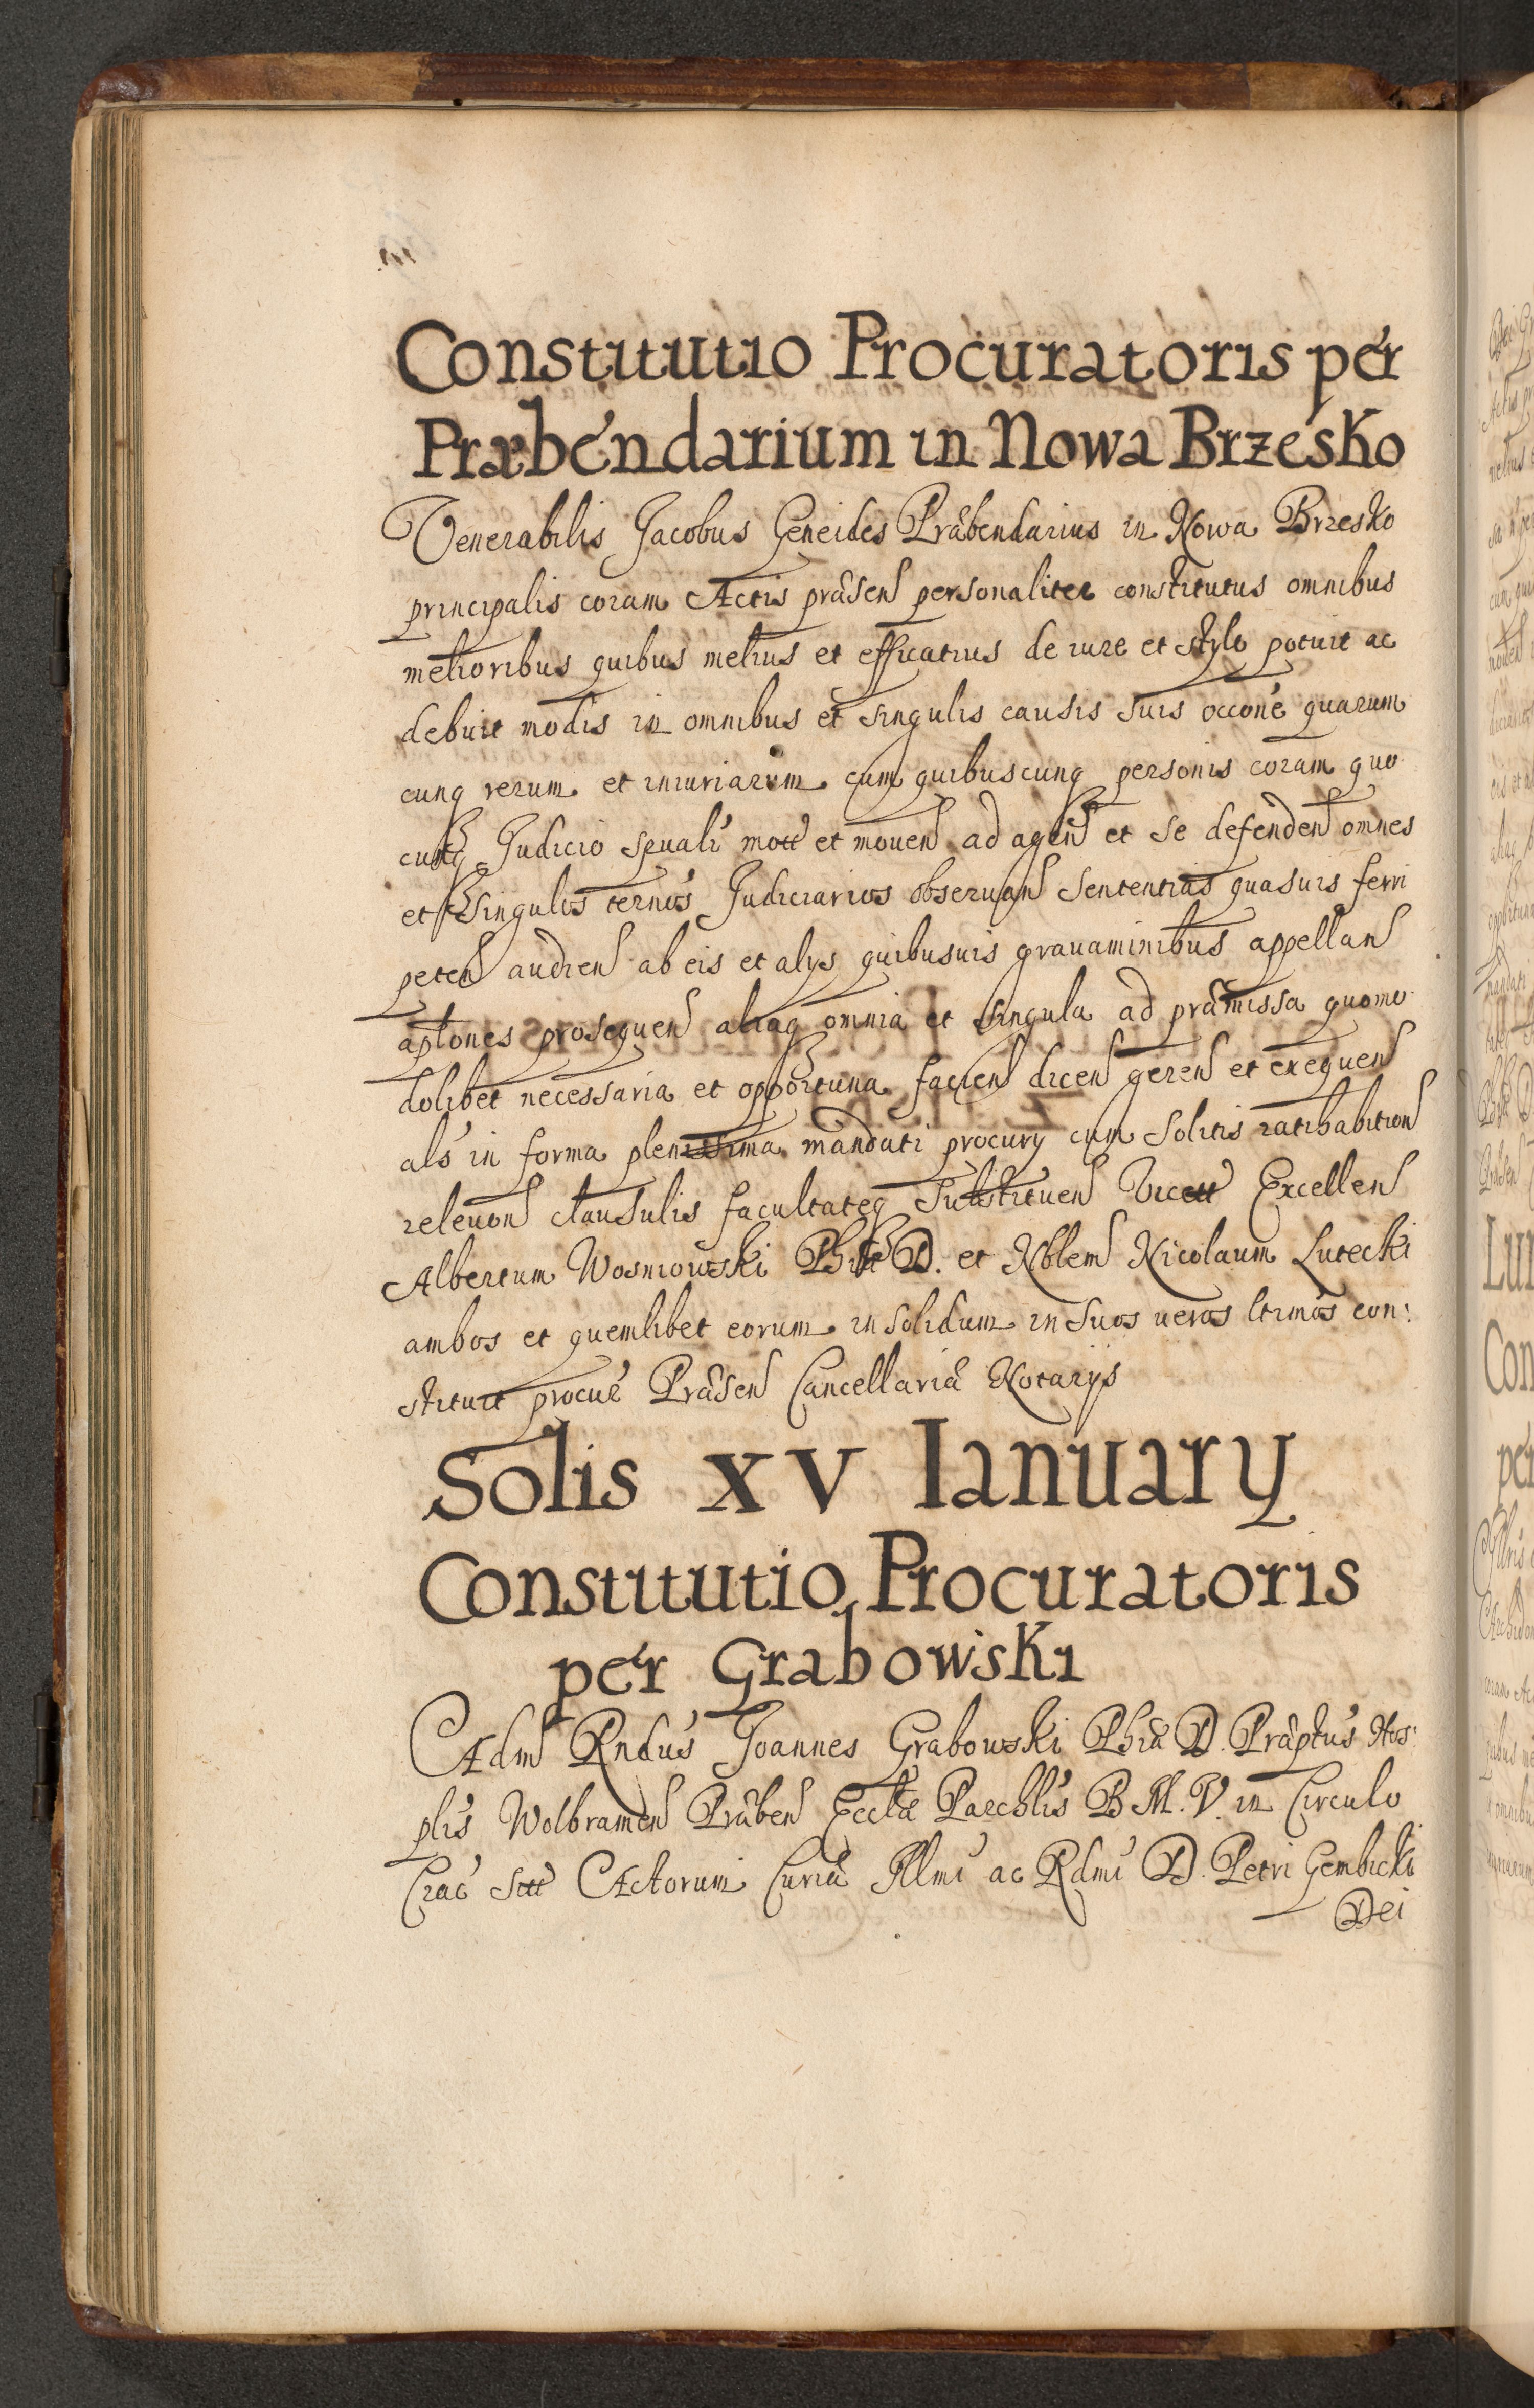 Constitutio Procuratoris per
Præbendarium in Nowa Brzesko
Venerabilis Jacobus Geneides Præbendarius in Nowa Brzesko
principalis coram Actis præsen personaliter constitutus omnibus
melioribus quibus melius et efficatius de iure et stylo potuit ac
debuit modis in omnibus et singulis causis suis occone quarum
cunq rerum et iniuriarum cum quibuscunq personis coram quo
cunq Judicio spuali mott et mouen ad agen et se defenden omnes
et singulos ternos Judiciarios obseruan sententias quasuis ferri
peten audien ab eis et alys quibusuis grauaminibus appellan
aplones prosequen aliaq omnia et singula ad præmissa quomo
dolibet necessaria et opportuna facien dicen geren et exequen
als in forma plenissima mandati procury cum solitis ratihabition
releuon clausulis facultateq substituen Vicett Excellen
Albertum Wosniowski Phiæ D. et Nblem Nicolaum Lutecki
ambos et quemlibet eorum in solidum in suos ueros ltimos con:
stituit procure Præsen Cancellariæ Notarijs
Solis XV Ianuary
Constitutio Procuratoris
per Grabowiski
Adm Rndus Joannes Grabowski Phiæ D. Præptus Hos:
plis Wolbramen Præben Eccllæ Parchlis B M. V. in Circulo
Crac sitt Actorum Curiæ Illmi ac Rdmi D. Petri Gembicki
Dei